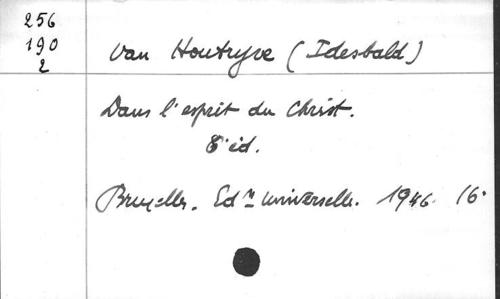 256
190
2
Van Houtryve (Idesbald)
Dans l'esprit du Christ.
8e éd.
Bruxelles. Ed^ns Universelles. 1946. 16°